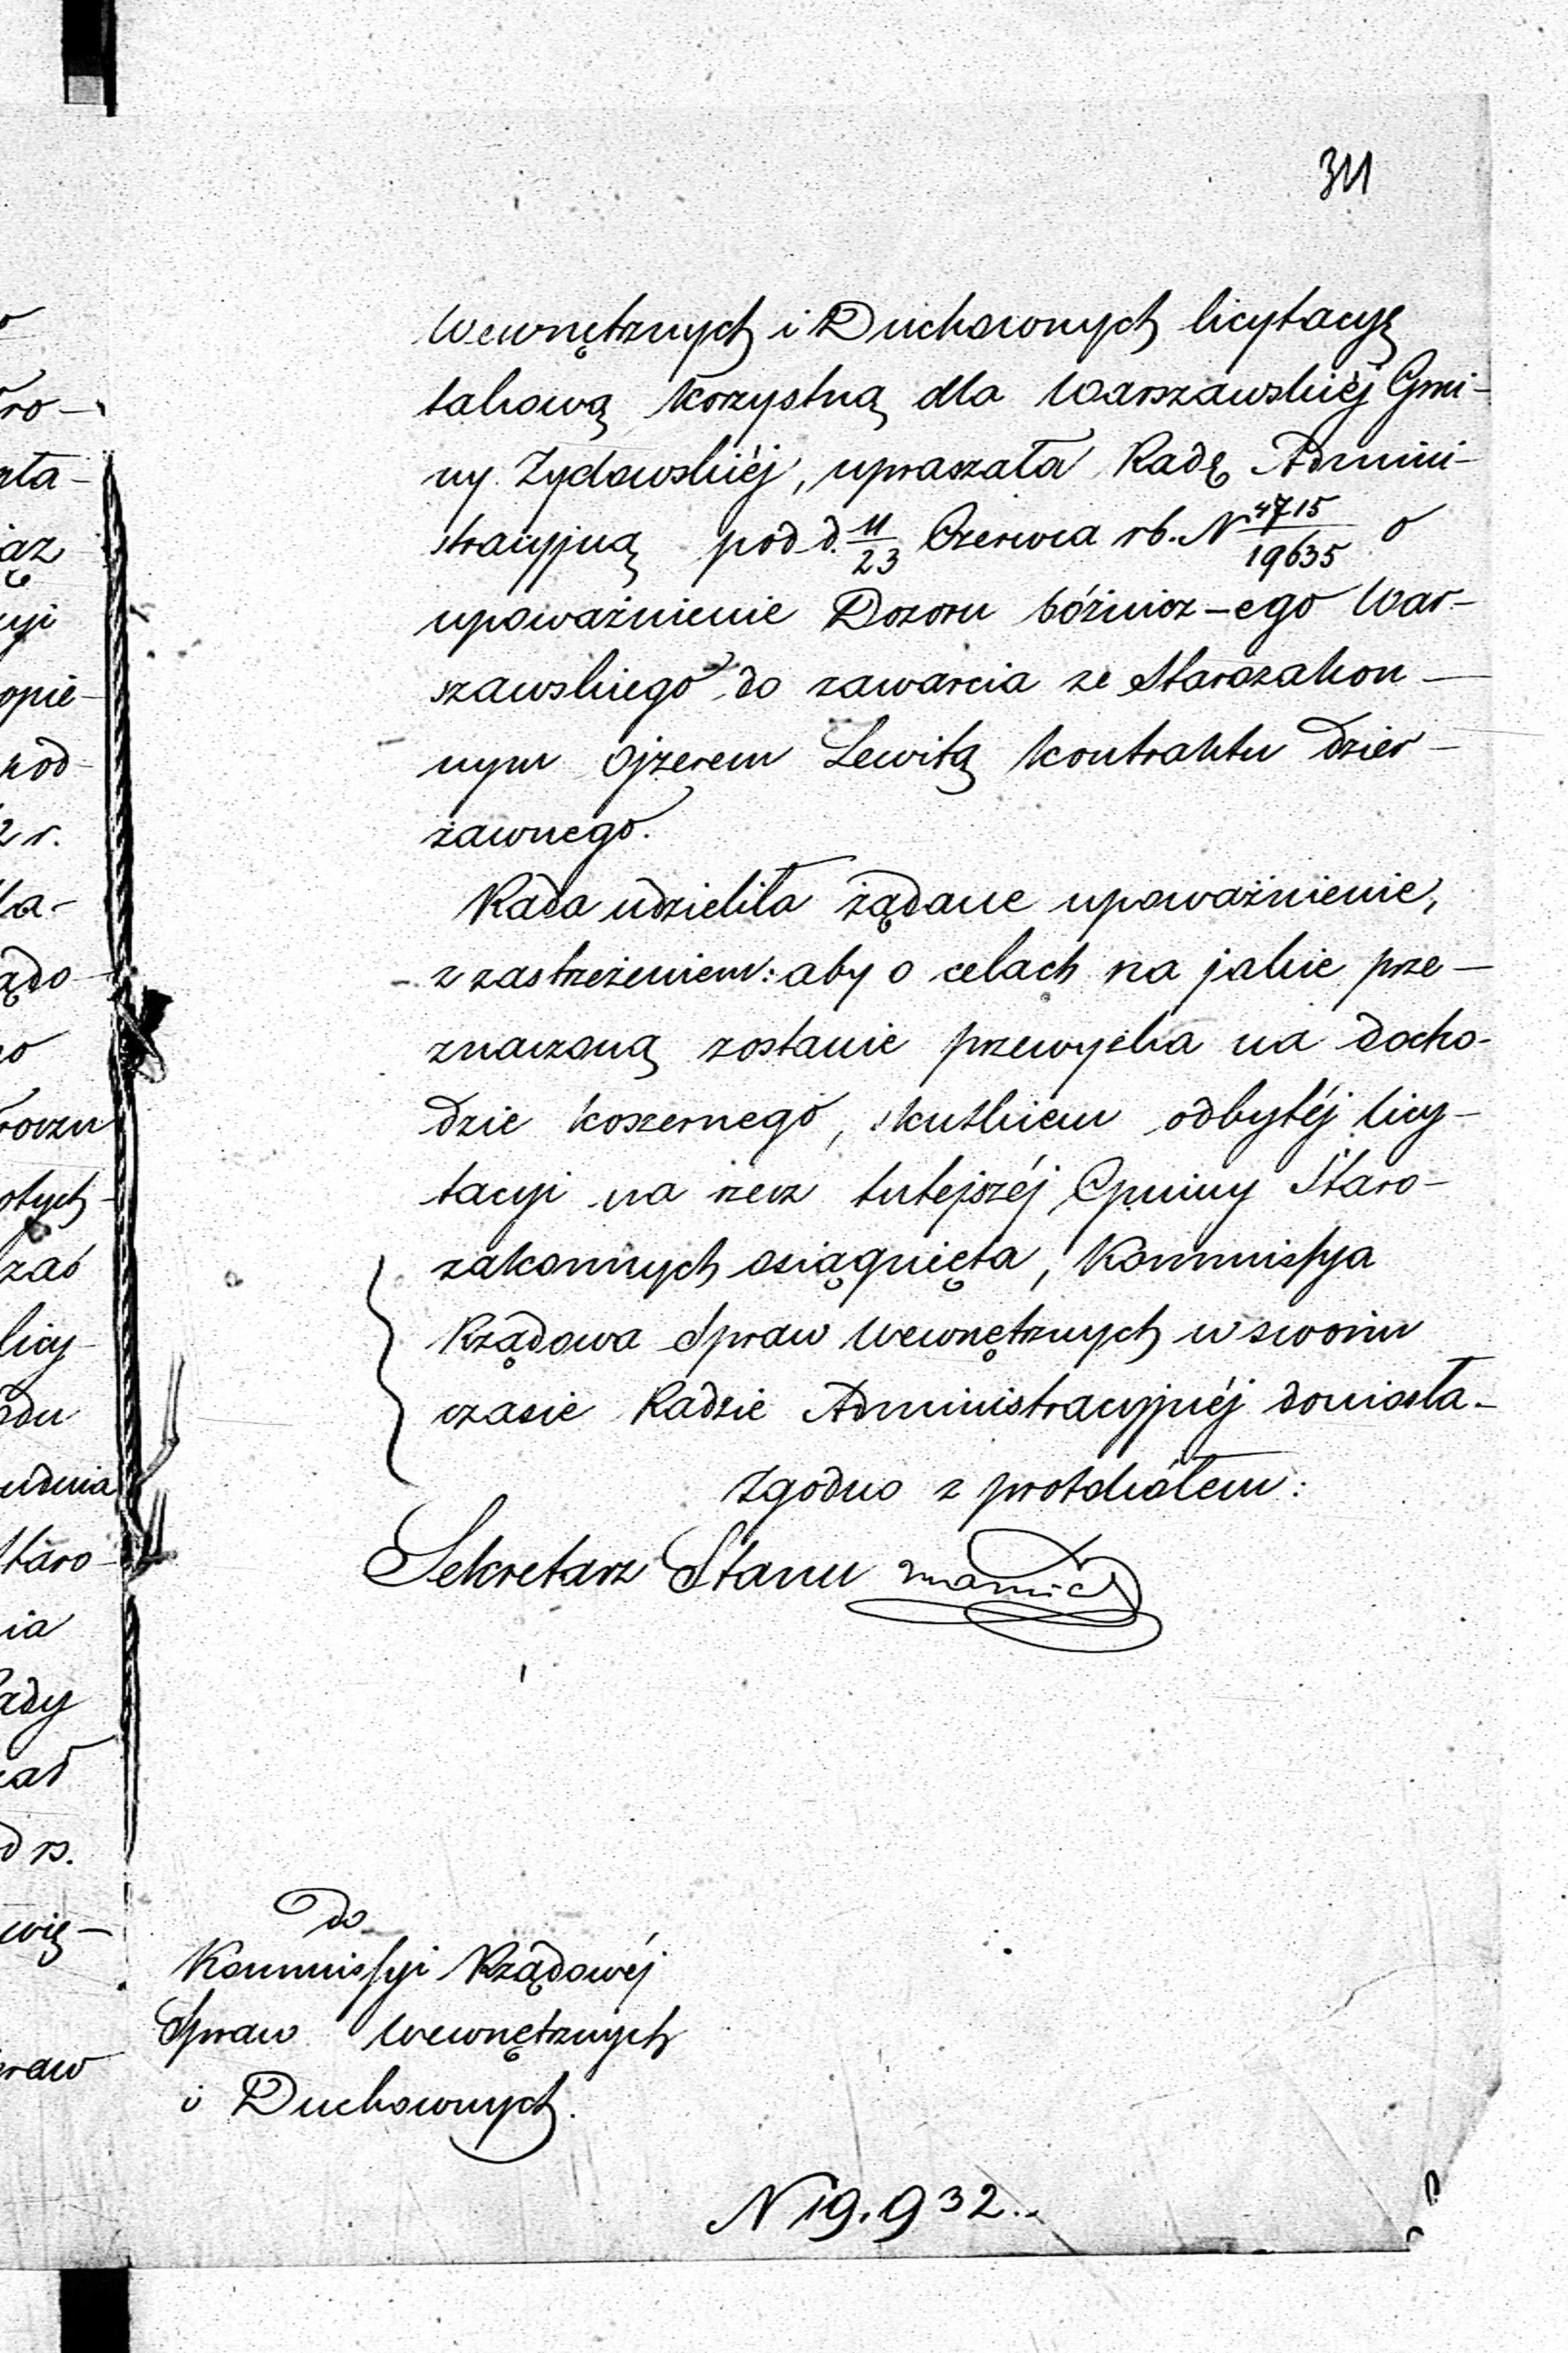 311
Wewnętrznych i Duchownych licytacyę
takową korzystną dla Warszawskiéj Gmi-
ny Żydowskiéj, upraszała Radę Admini-
stracyjną pod d. 11/23 Czerwca rb. N 4715/19635 o
upoważnienie Dozoru bóżnicz-ego War-
szawskiego do zawarcia ze Starozakon-
nym Ojzerem Lewitą kontraktu dzier-
żawnego.
Rada udzieliła żądane upoważnienie,
z zastrzeżeniem: aby o celach na jakie prze-
znaczoną zostanie przewyżka na docho-
dzie koszernego, skutkiem odbytéj licy-
tacyi na rzecz tutejszéj Gminy Staro-
zakonnych osiągnięta, Kommissya
Rządowa Spraw Wewnętrznych w swoim
czasie Radzie Administracyjnéj doniosła.
Zgodno z protokółem:
Sekretarz Stanu
Do
Kommissyi Rządowéj
Spraw Wewnętrznych
i Duchownych.
N 19.932.